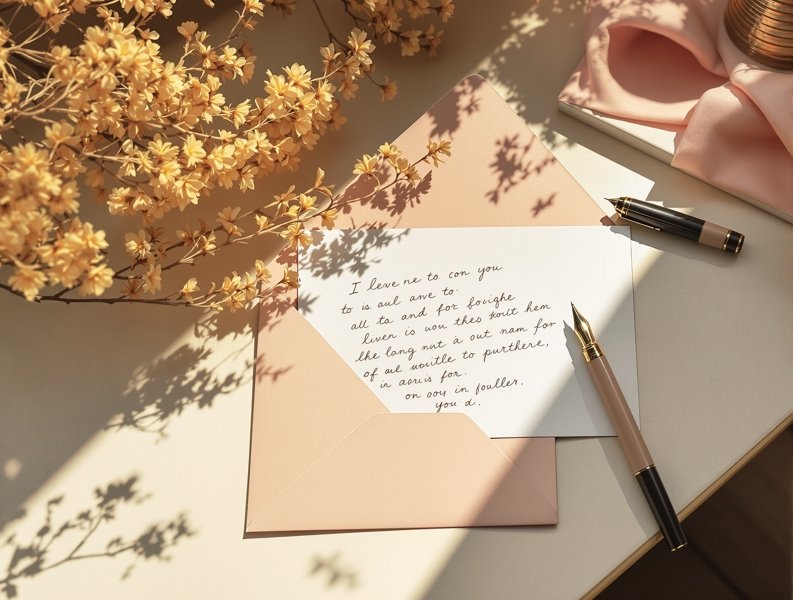 I leve ne to con you
to is aul anve to.
all ta and for fouighe
liven is uou thes
lhe lang nut a out nam for
of ael to purthere,
in aorus for.
on ooy in fouller.
you d.